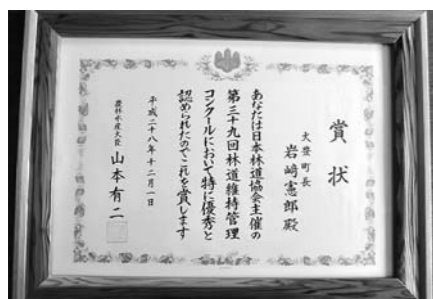 賞状
大豊町長
岩﨑憲郎殿
あなたは日本林道協会主催の
第三十九回林道維持管理
コンクールにおいて特に優秀と
認められたのでこれを賞します
平成二十八年十二月一日
農林水産大臣 山本有二